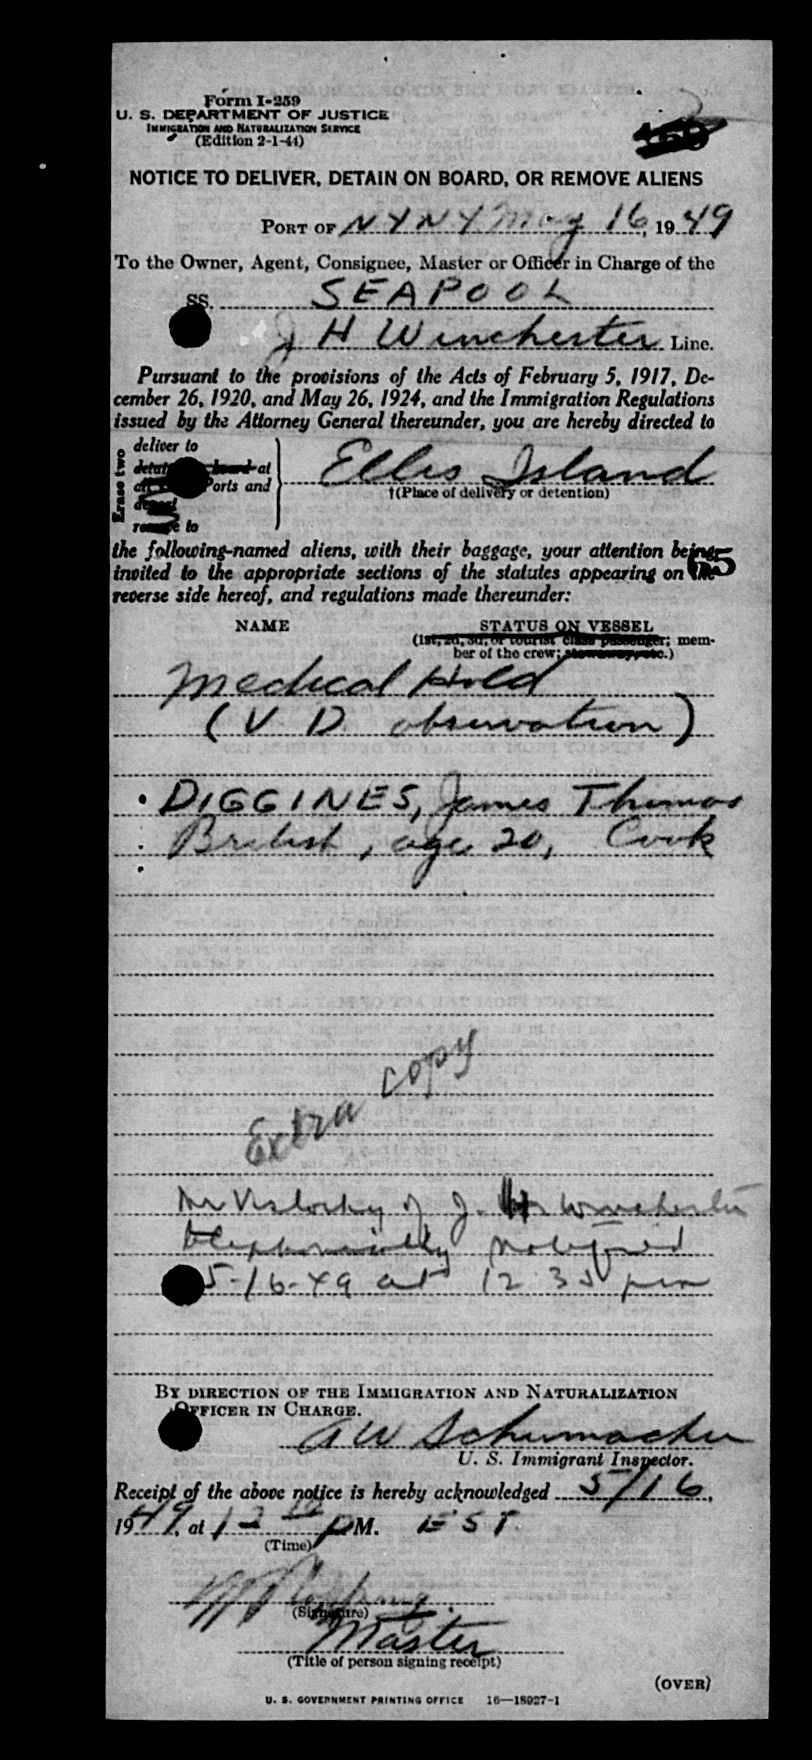 Form I-259
U. S. DEPARTMENT OF JUSTICE
IMMIGRATION AND NATURALIZATION SERVICE
(Edition 2-1-44)
NOTICE TO DELIVER, DETAIN ON BOARD, OR REMOVE ALIENS
PORT OF NYNY May 16, 1949
To the Owner, Agent, Consignee, Master or Officer in Charge of the
SS. SEAPOOL
J H Winchester Line.
Pursuant to the provisions of the Acts of February 5, 1917, De-
cember 26, 1920, and May 26, 1924, and the Immigration Regulations
issued by the Attorney General thereunder, you are hereby directed to
Erase two
deliver to
at
Ports and
remove to
Ellis Island
†(Place of delivery or detention)
the following-named aliens, with their baggage, your attention being
65
invited to the appropriate sections of the statutes appearing on the
reverse side hereof, and regulations made thereunder:
NAME STATUS ON VESSEL
(1st, 2d, 3d, or tourist class passenger; mem-
ber of the crew; stowaway, etc.)
Medical Hold
(V D observation)
DIGGINES, James Thomas
British, age 20, Cook
Extra copy
Mr of J. H Winchester
telephonically notified
5-16-49 at 12 35 pm
BY DIRECTION OF THE IMMIGRATION AND NATURALIZATION
OFFICER IN CHARGE.
A W Schumacher
U. S. Immigrant Inspector.
Receipt of the above notice is hereby acknowledged 5/16,
1949, at 12 10 P M. EST
(Time)
(Signature)
Master
(Title of person signing receipt)
(OVER)
U. S. GOVERNMENT PRINTING OFFICE 16—18927-1